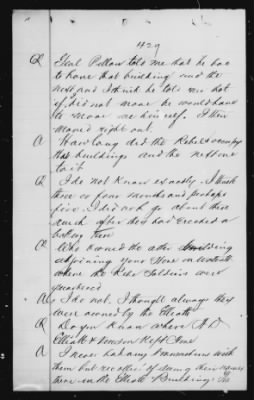 429
Q Genl Pillow told me that he has
to have that building and the
next and I think he told me that
if I did not move he would have
to move me himself. I then
moved right out.
A How long did the Rebels occupy
that buildings and the next one
to it
Q I do not know exactly. I think
three or four months and perhaps
five. I did not go about there
much after they had erected a
there
Q Who owned the other building
adjoining your Store on
where the Rebel Soldiers were
quartered
A I do not. I thought always they
were owned by the Elliotts
Q Do you know where A D
Elliott & kept Store
A I never had any with
them but recollect of seeing their
there in the Elliott Building. The